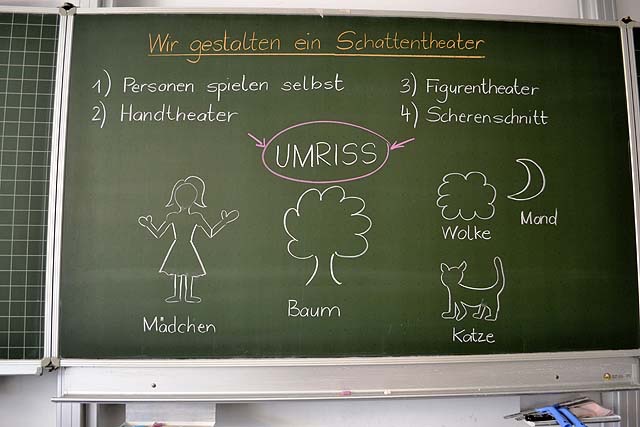 Wir gestalten ein Schattentheater
1) Personen spielen selbst
2) Handtheater
3) Figurentheater
4) Scherenschnitt
UMRISS
Wolke
Mond
Mädchen
Baum
Katze